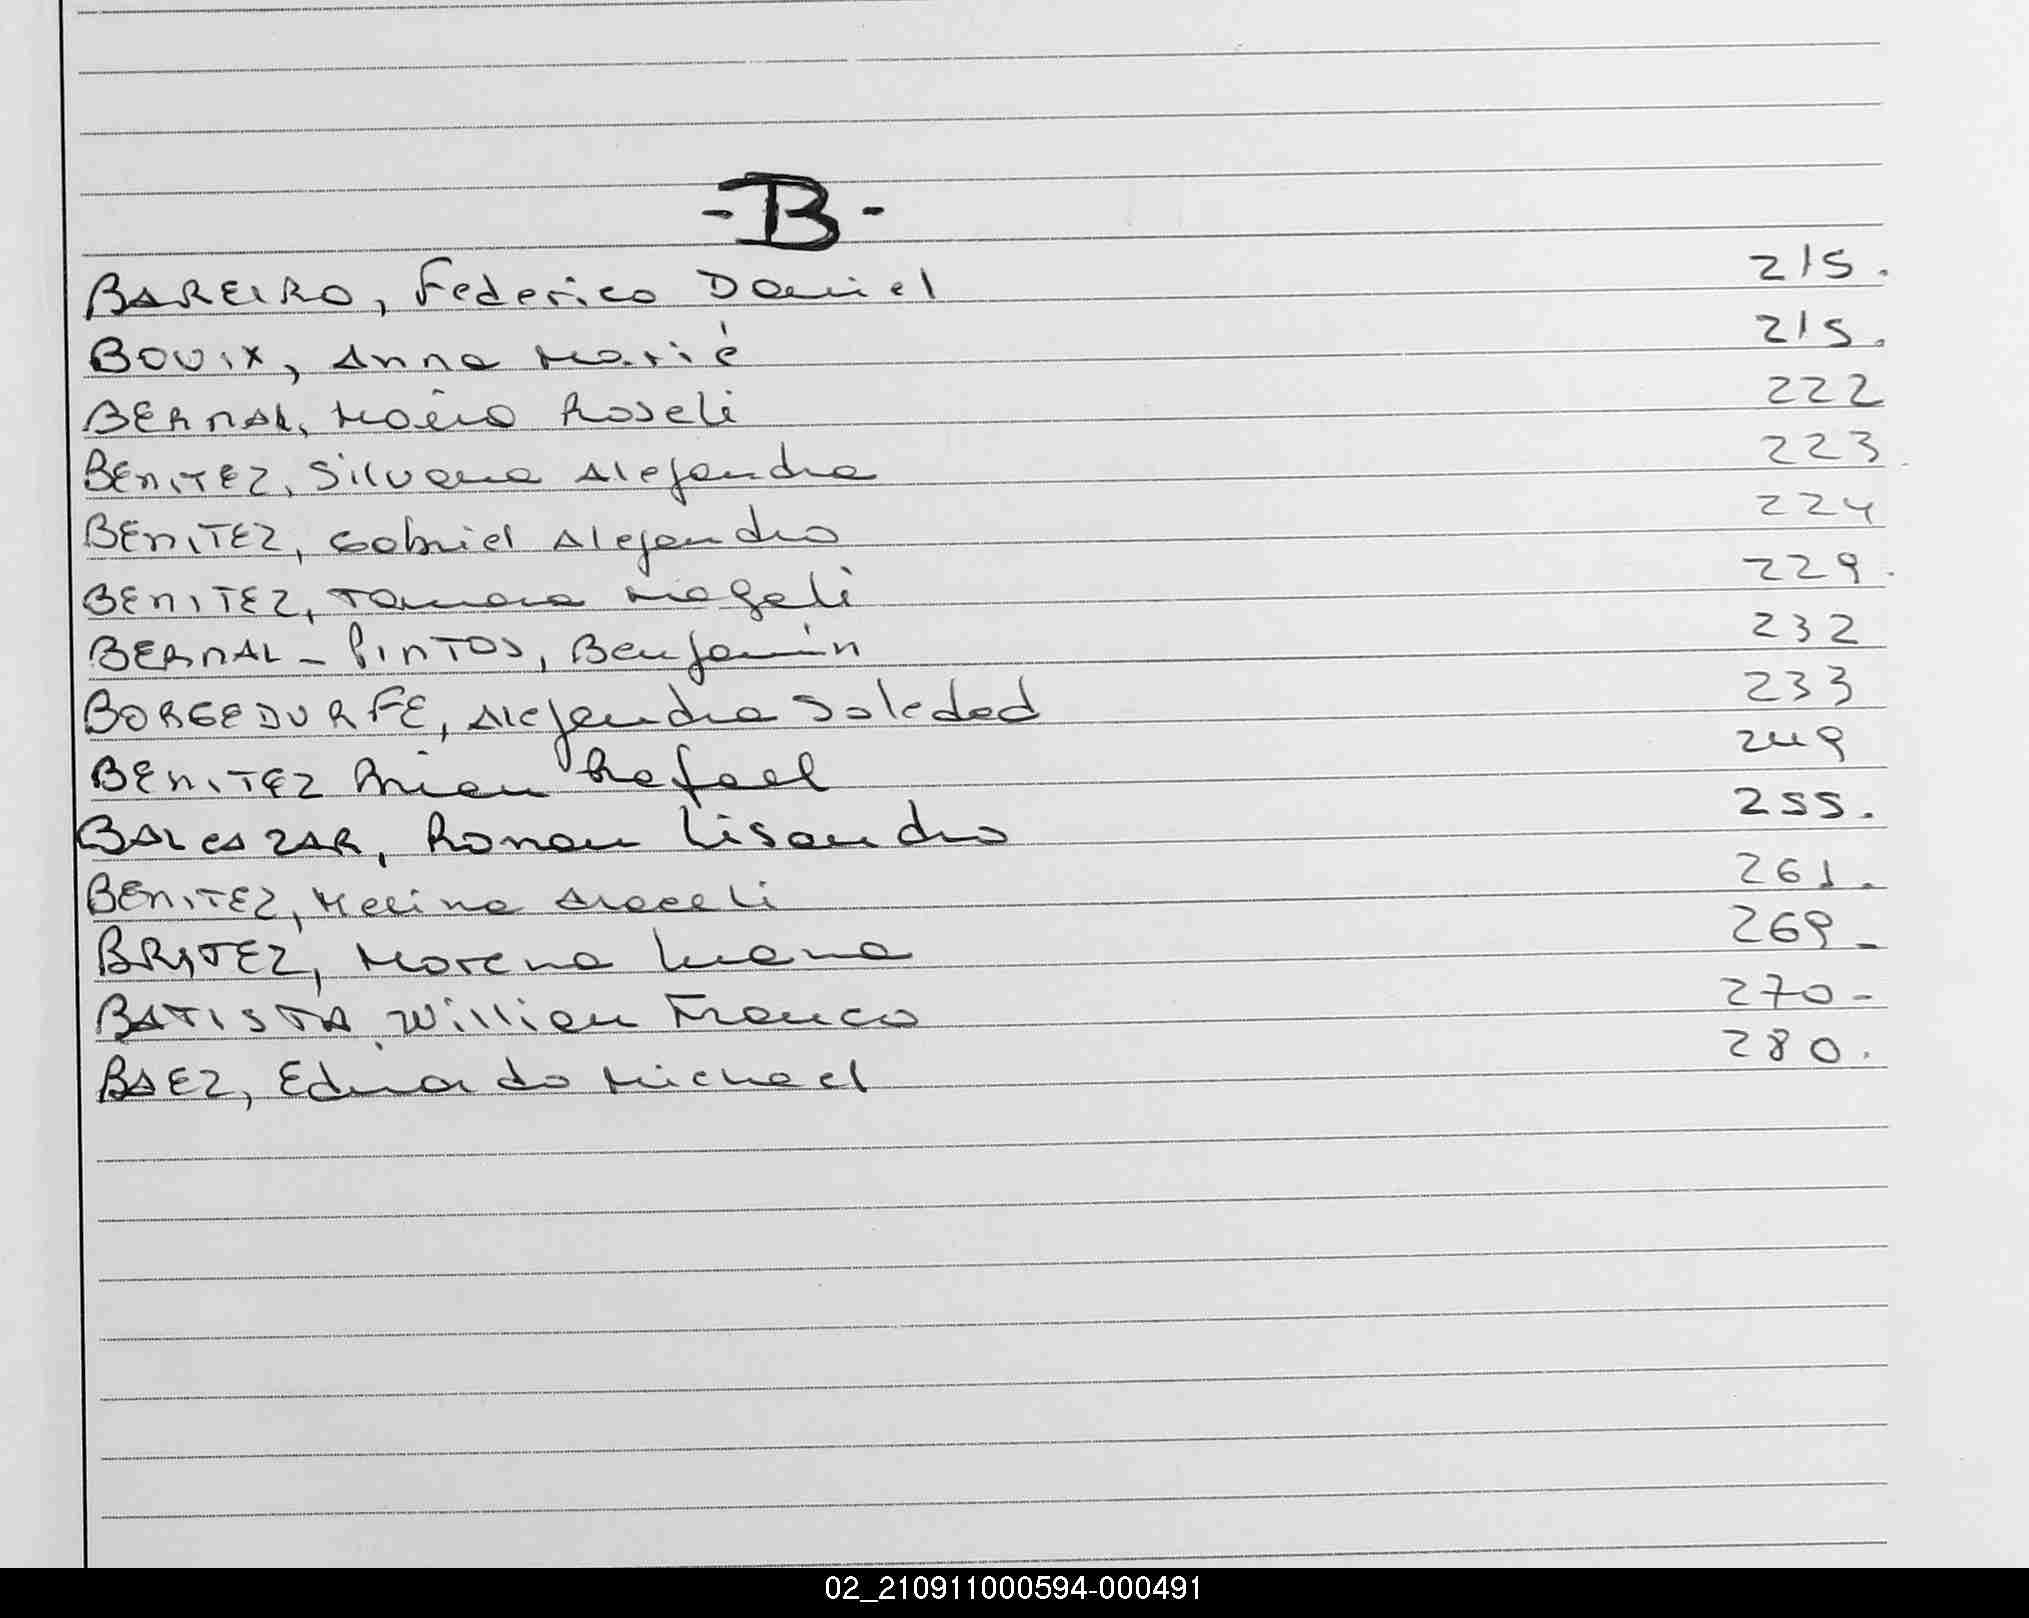 -B-
BAREIRO, Federico Daniel 215.
BOUIX, Anna Marié 215.
BERNAL, Maria Roseli 222
BENITEZ, Silvana Alejandra 223
BENITEZ, Gabriel Alejandro 224
BENITEZ, Tamara Magali 229.
BERNAL - PINTOS, Benjamin 232
BORGEDURFE, Alejandra Soledad 233
BENITEZ Brian Rafael 249
BALCAZAR, Roman Lisandro 255.
BENITEZ, Melina Araceli 261.
BRITEZ, Morena Luana 269-
BATISTA, Willian Franco 270-
BAEZ, Eduardo Michael 280.
02_210911000594-000491